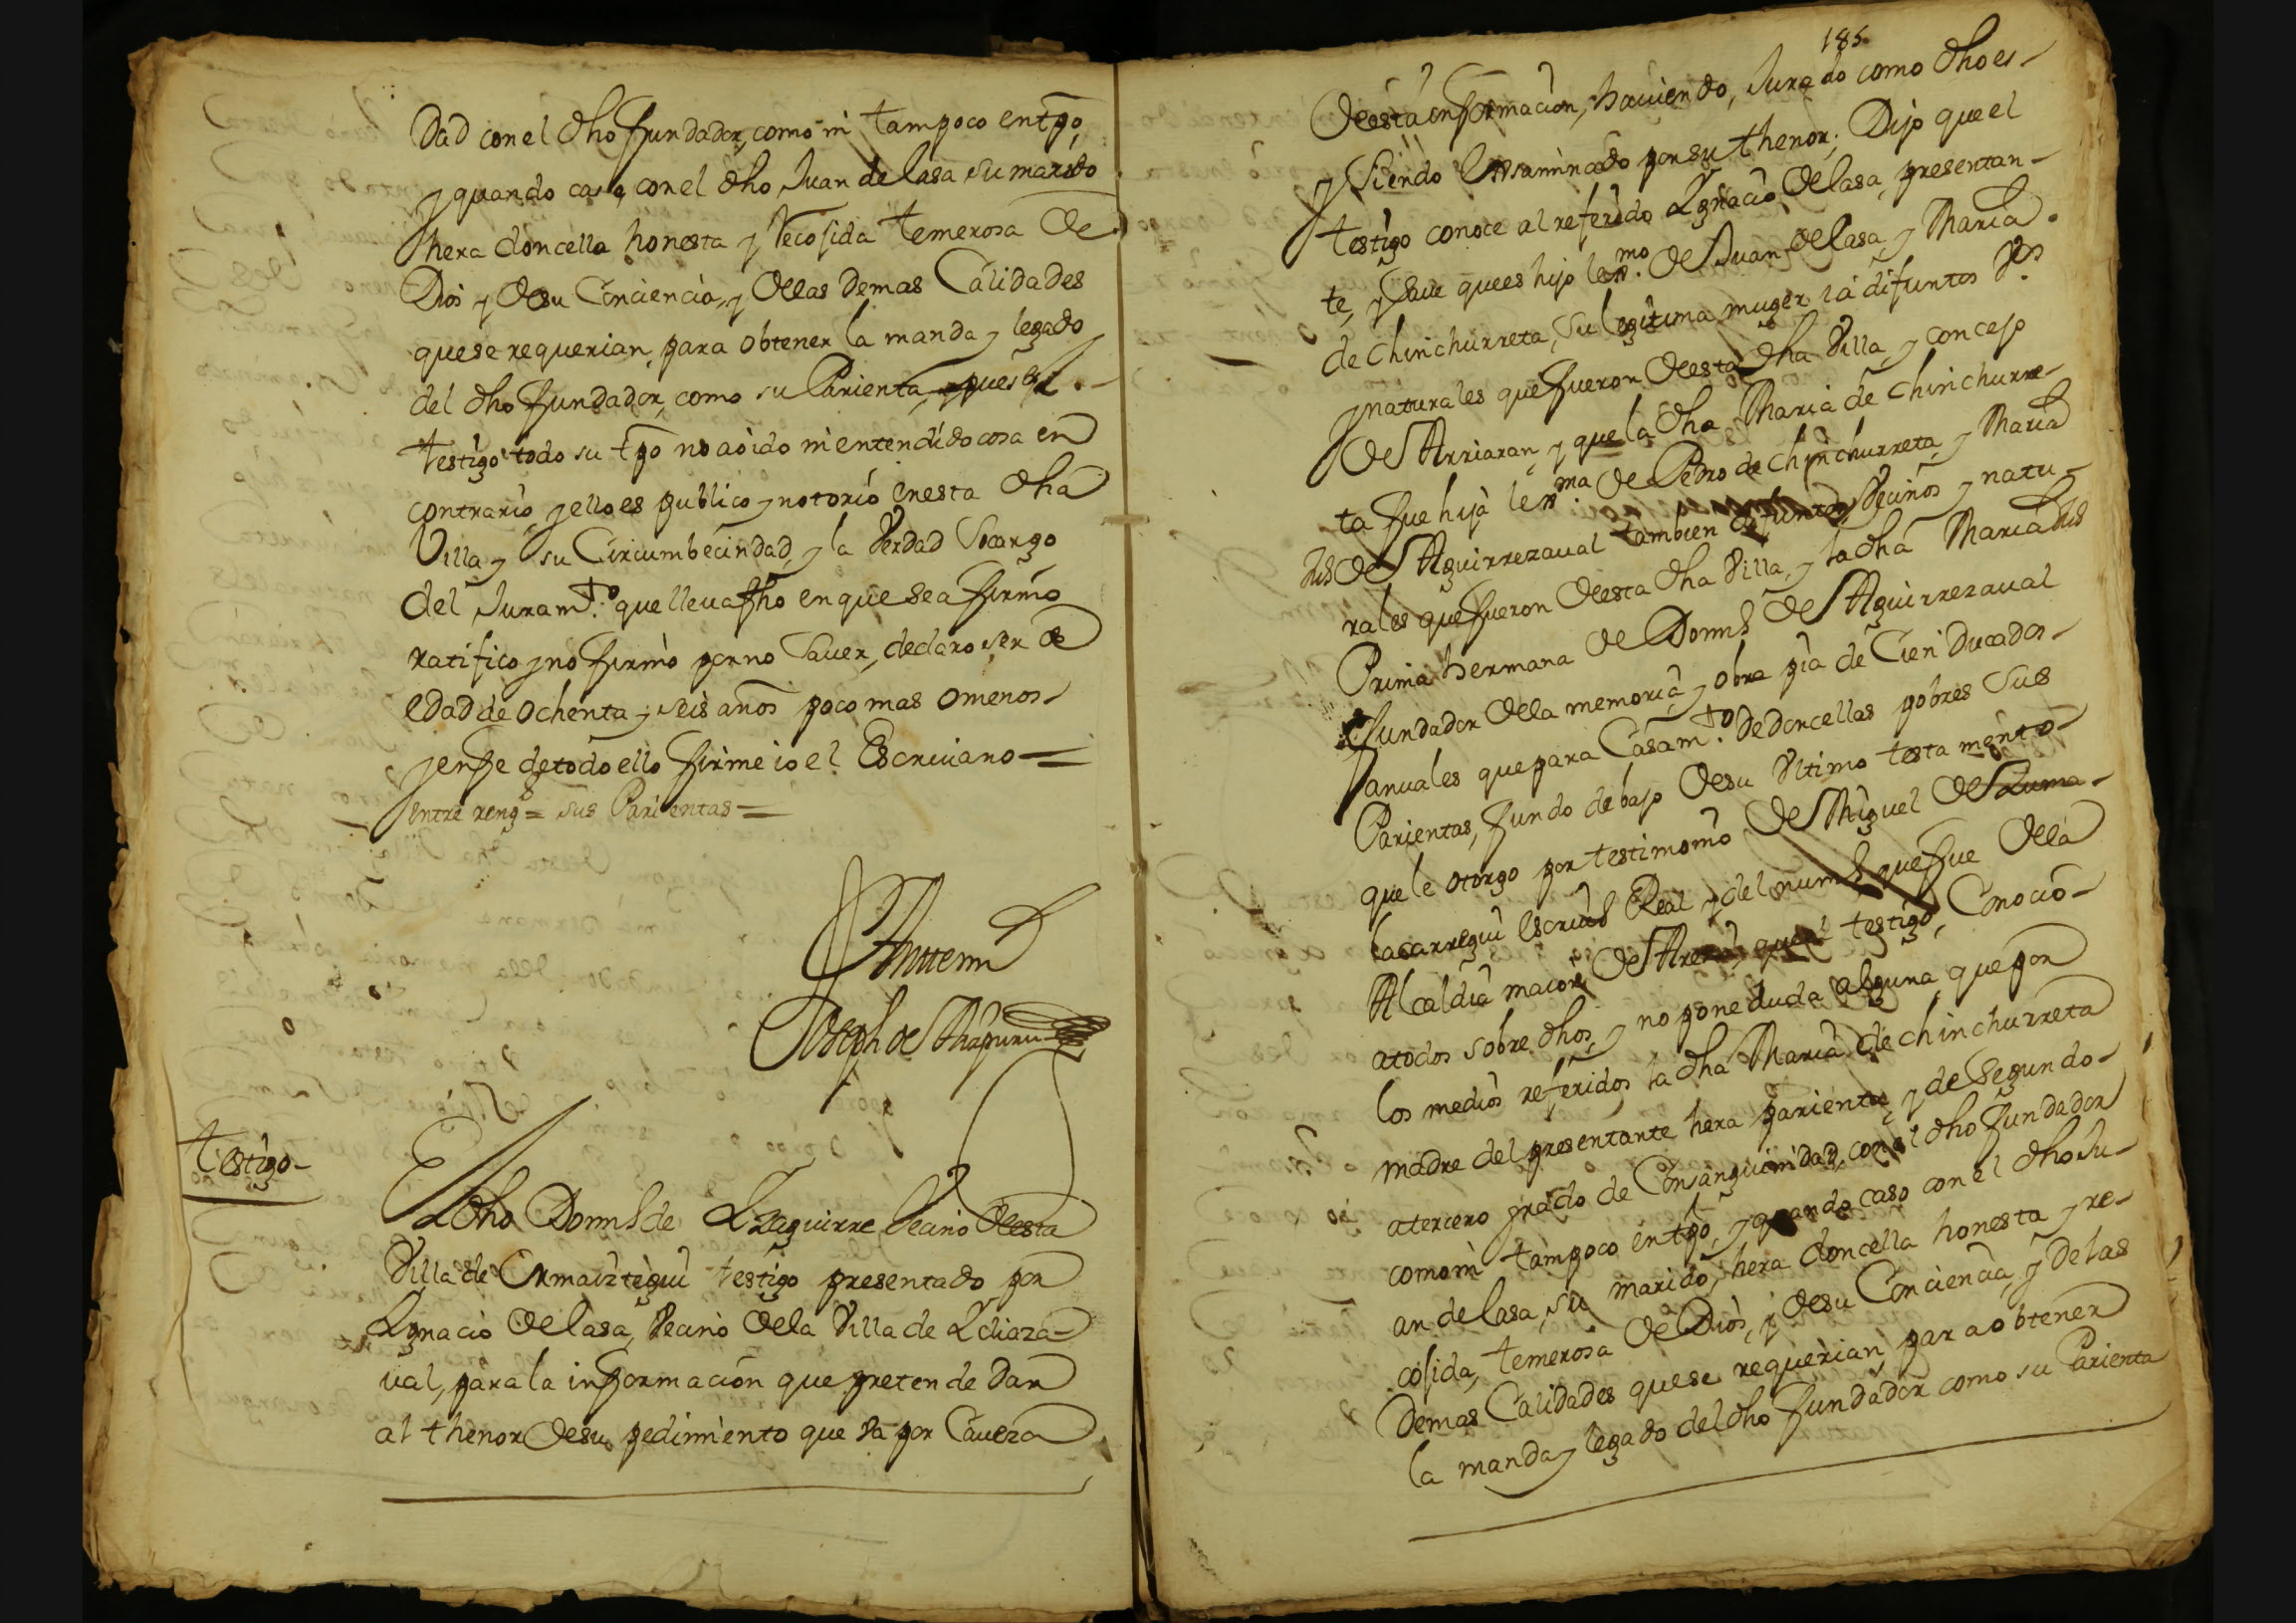 dad con el dho fundador, como ni tampoco entpo,
y quando caso con el dho Juan de lasa su marido
hera doncella honesta y recojida temerosa de
Dios y de su Conciencia, y de las demas Calidades
que se requerian, para obtener la manda y legado
del dho fundador, como su Parienta, y pues el
testigo todo su tpo no a oido ni entendido cosa en
contrario, y ello es publico y notorio en esta dha
Villa y su Circumbecindad, y la Verdad Socargo
del Juramto. que lleva fho en que se afirmo
ratifico y no firmo por no saver, declaro ser de
edad de ochenta y seis años poco mas o menos
y en fe de todo ello firme io el Escriuano
entre reng = sus Parientas =
Antemi
Joseph de
Testigo
El dho Domingo de Yzaguirre Vecino desta
Villa de Ormaiztegui testigo presentado por
Ygnacio de lasa, Vecino de la Villa de Ydiaza-
ual, para la informacion que pretende dar
al thenor de su pedimiento que va por Caueza
185
de esta informacion, hauiendo, Jurado como dho es
y Siendo Exsaminado por su thenor; Dijo que el
testigo conoce al referido Ygnacio de lasa, presentan-
te, y Saue que es hijo legmo. de Juan de lasa, y Maria
de chinchurreta, su legitima muger ia difuntos Vos
y naturales que fueron de esta dha Villa, y concejo
de Arriaran, y que la dha Maria de chinchurre-
ta fue hija legma de Pedro de chinchurreta, y Maria
de Aguirrezaual tambien difuntos Vecinos y natu-
rales que fueron de esta dha Villa, y la dha Maria
Prima hermana de Domingo de Aguirrezaual
fundador de la memoria y obra pia de Cien Ducados
anuales que para Casamto. de doncellas pobres sus
Parientas, fundo debajo de su Vltimo testamento
que le otorgo por testimonio de Miguel de Zuma-
lacarregui Escriuo Real y del numo que fue de la
Alcaldia maior de Areria que el testigo Conocio
a todos sobre dhos, y no pone duda alguna que por
los medios referidos la dha Maria de chinchurreta
madre del presentante hera parienta, y de Segundo
a tercero grado de Consanguinidad, con el dho fundador
como ni tampoco entpo, y quando caso con el dho Ju-
an de lasa, su marido, hera doncella honesta y re-
cojida, temerosa de Dios, y de su Conciencia, y de las
demas Calidades que se requerian para obtener
la manda y legado del dho fundador como su Parienta